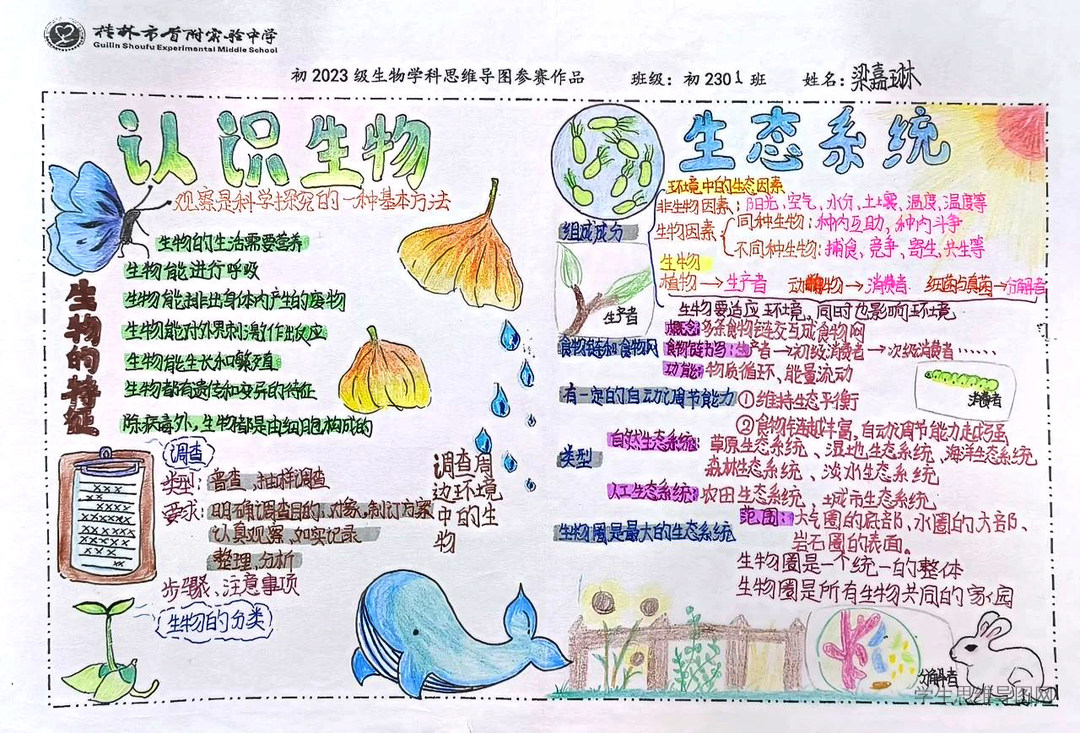 桂林市首附实验中学
Guilin Shoufu Experimental Middle School
初 2023 级生物学科思维导图参赛作品 班级：初 2301 班 姓名：梁嘉琳
认识生物
观察是科学探究的一种基本方法
生物的特征
生物的生活需要营养
生物能进行呼吸
生物能排出身体内产生的废物
生物能对外界刺激作出反应
生物能生长和繁殖
生物都有遗传和变异的特征
除病毒外，生物都是由细胞构成的
调查
类型：普查、抽样调查
要求：明确调查目的、对象，制订方案
认真观察、如实记录
整理、分析
步骤、注意事项
生物的分类
调查周
边环境
中的生
物
生态系统
组成成分
环境中的生态因素
非生物因素：阳光、空气、水分、土壤、温度、湿度等
生物因素
同种生物：种内互助、种内斗争
不同种生物：捕食、竞争、寄生、共生等
生物
植物→生产者 动物→消费者 细菌与真菌→分解者
生物要适应环境，同时也影响环境
生产者
食物链和食物网
概念：多条食物链交互成食物网
食物链书写：生产者→初级消费者→次级消费者……
功能：物质循环、能量流动
消费者
有一定的自动调节能力
①维持生态平衡
②食物链越丰富，自动调节能力越强
类型
自然生态系统：草原生态系统、湿地生态系统、海洋生态系统
森林生态系统、淡水生态系统
人工生态系统：农田生态系统、城市生态系统
生物圈是最大的生态系统
范围：大气圈的底部、水圈的大部、
岩石圈的表面。
生物圈是一个统一的整体
生物圈是所有生物共同的家园
分解者
学生思维导图网